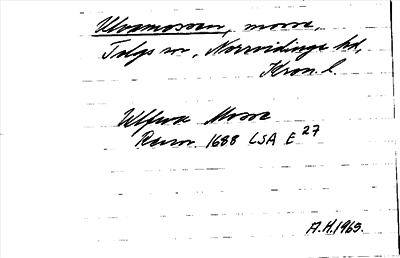 Ulvamossen, mosse,
Tolgs sn, Norrvidinge hd,
Kron. l.
Ulfwa Mosse
Renov. 1688 LSA E 27
A.H. 1965.